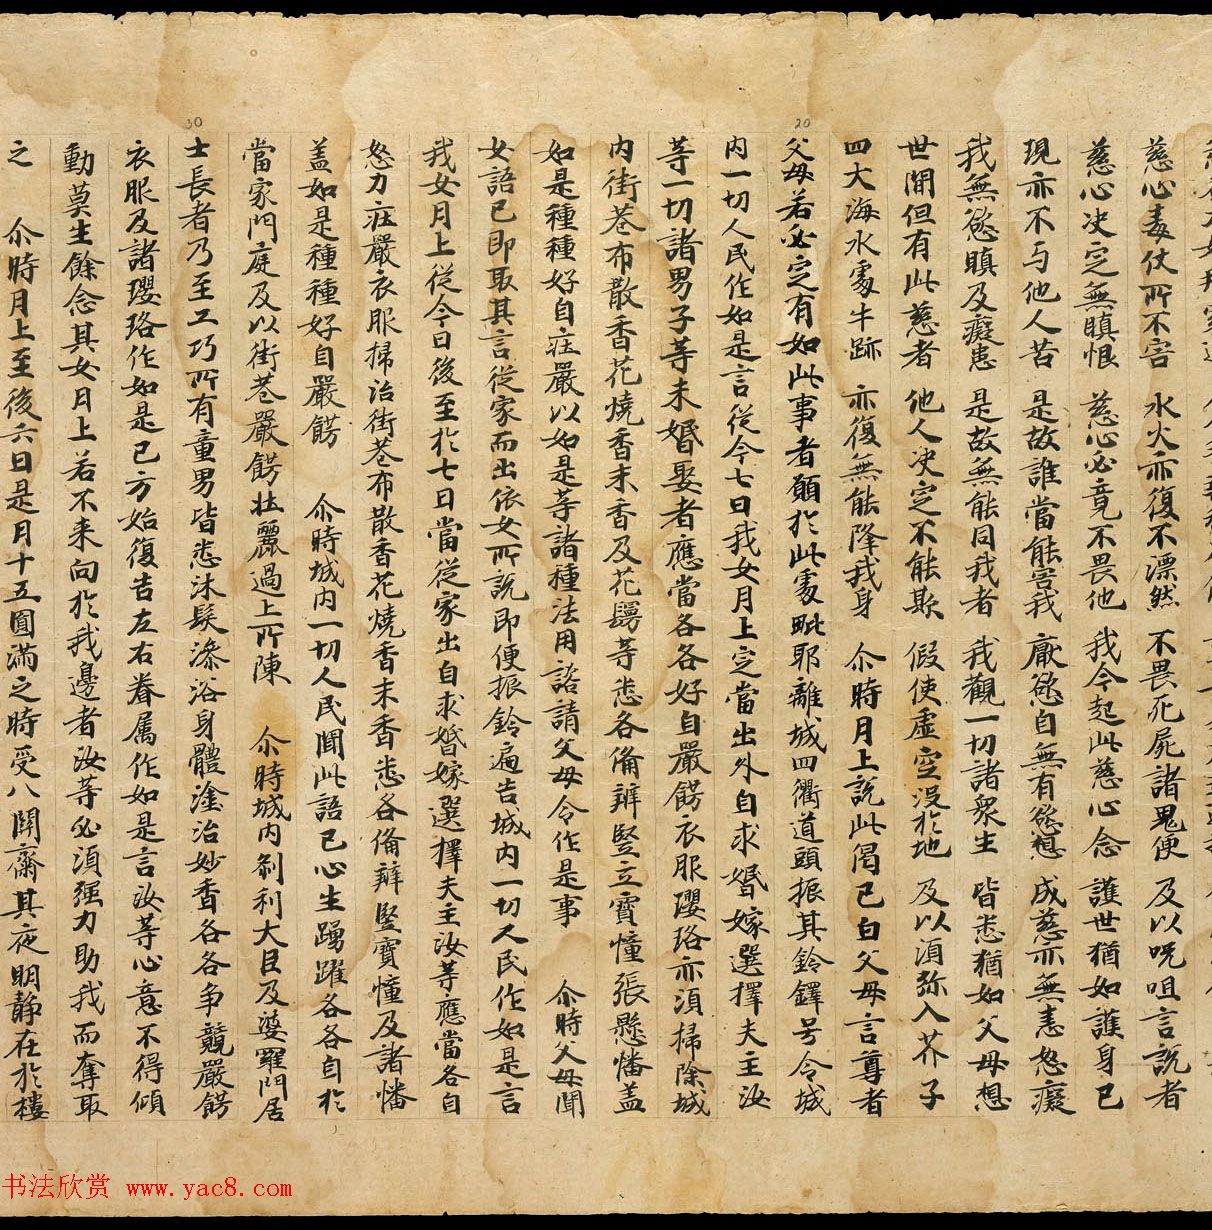 慈心毒仗所不害 水火亦復不漂然 不畏死屍諸鬼便 及以呪咀言說者
慈心决定無瞋恨 慈心必竟不畏他 我今起此慈心念 護世猶如護身已
現亦不与他人苦 是故誰當能害我 厭慾自無有慾想 成慈亦無恚怒癡
我無慾瞋及癡恚 是故無能同我者 我觀一切諸衆生 皆悉猶如父母想
世間但有此慈者 他人决定不能欺 假使虛空没於地 及以湏弥入芥子
四大海水處牛跡 亦復無能降我身 尒時月上說此偈已白父母言尊者
父母若必定有如此事者願於此處毗耶離城四衢道頭振其鈴鐸号令城
内一切人民作如是言從今七日我女月上定當出外自求婚嫁選擇夫主汝
等一切諸男子等未婚娶者應當各各好自嚴餝衣服瓔珞亦湏掃除城
内街巷布散香花燒香末香及花鬘等悉各俻辦竪立寶憧張懸幡盖
如是種種好自莊嚴以如是等諸種法用諮請父母令作是事 尒時父母聞
女語已即取其言從家而出依女所說即便振鈴遍告城内一切人民作如是言
我女月上從今日後至於七日當從家出自求婚嫁選擇夫主汝等應當各自
怒力莊嚴衣服掃治街巷布散香花燒香末香悉各俻辦竪寶憧及諸幡
盖如是種種好自嚴餝 尒時城内一切人民聞此語已心生踴躍各各自於
當家門庭及以街巷嚴餝壯麗過上所陳 尒時城内刹利大臣及婆羅門居
士長者乃至工巧所有童男皆悉沐髮澡浴身體塗治妙香各各争競嚴餝
衣服及諸瓔珞作如是已方始復告左右眷属作如是言汝等心意不得傾
動莫生餘念其女月上若不来向於我邊者汝等必湏强力助我而奪取
之 尒時月上至後六日是月十五圓滿之時受八關齋其夜明静在於樓
20
30
书法欣赏 www.yac8.com